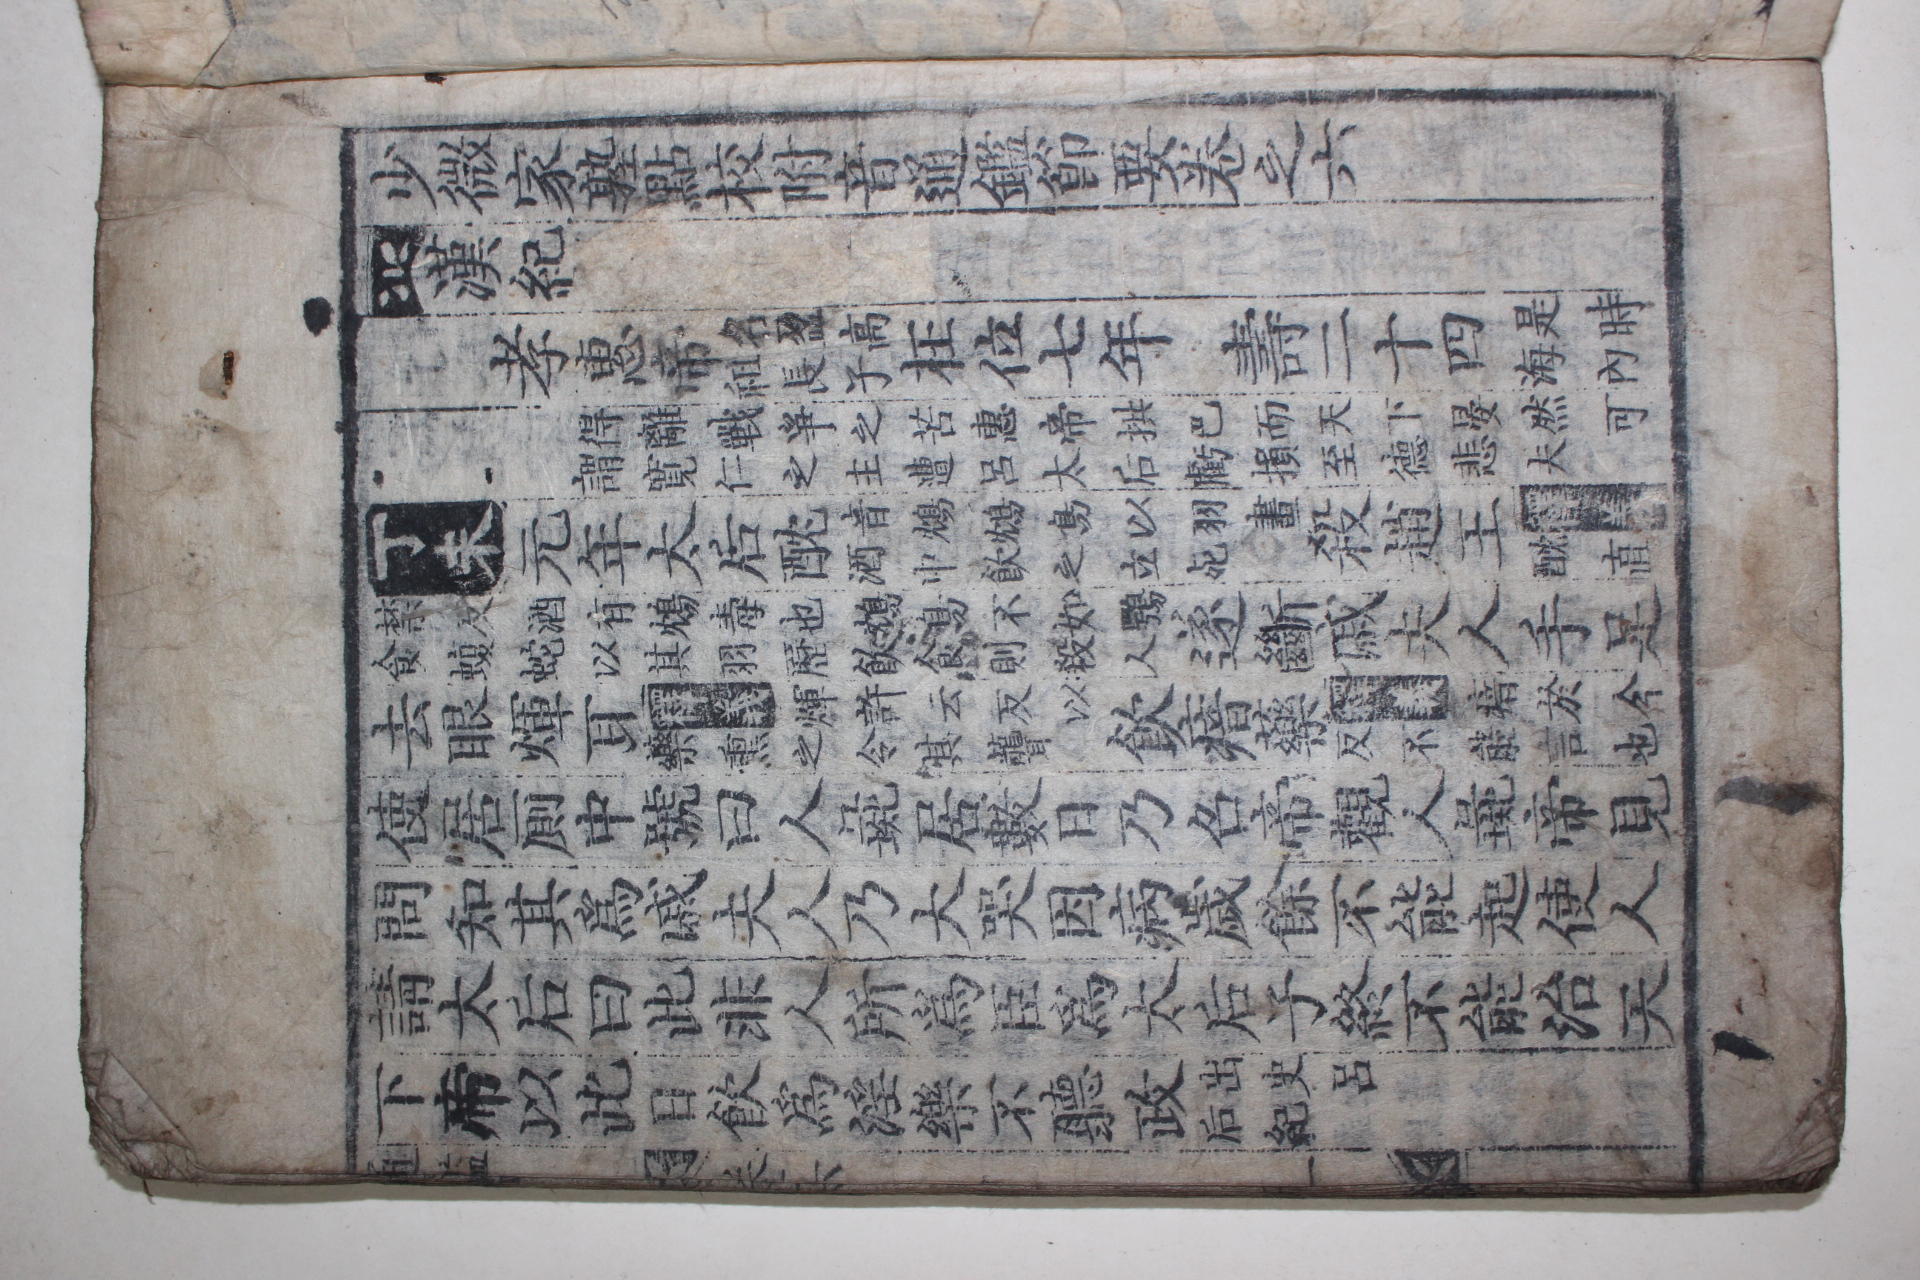 少微家塾點校附音通鑑節要卷之六
漢紀
孝惠帝名盈高祖長子在位七年 壽二十四是時海內
得離戰爭之苦惠帝拱巴而天下晏然可
謂寬仁之主遭呂太后虧損至德悲夫
丁未元年太后酖音鴆鴆鳥以羽畫酒中飮之立死殺趙王釋義酖直
禁反酒有鴆毒也鴆鳥不如鶚食蝮蛇以其羽歷飮食則殺人遂斷戚夫人手足
去眼煇耳釋義煇許云反以藥熏之令其聾飮瘖藥釋義瘖於今反不能言也
使居厠中號曰人彘居數日乃召帝觀人彘帝見
問知其爲戚夫人乃大哭因病歲餘不能起使人
請太后曰此非人所爲臣爲太后子終不能治天
下帝以此日飮爲淫樂不聽政出史呂后紀
通鑑 卷六 一